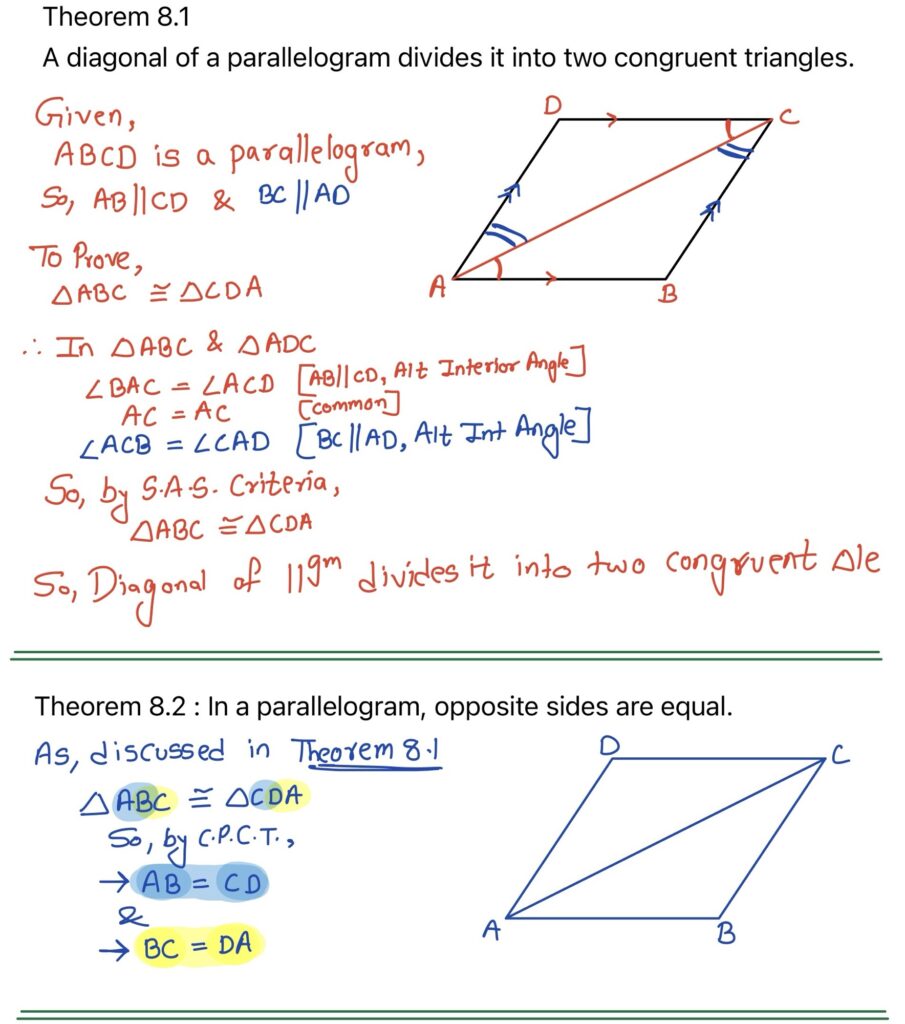 Theorem 8.1
A diagonal of a parallelogram divides it into two congruent triangles.
Given,
ABCD is a parallelogram,
So, AB||CD & BC||AD
To Prove,
△ABC ≅ △CDA
D
C
A
B
∴ In △ABC & △ADC
∠BAC = ∠ACD [AB||CD, Alt Interior Angle]
AC = AC [common]
∠ACB = ∠CAD [BC||AD, Alt Int Angle]
So, by S.A.S. Criteria,
△ABC ≅ △CDA
So, Diagonal of ||gm divides it into two congruent △le
Theorem 8.2 : In a parallelogram, opposite sides are equal.
As, discussed in Theorem 8.1
△ABC ≅ △CDA
So, by C.P.C.T.,
→ AB = CD
&
→ BC = DA
D
C
A
B